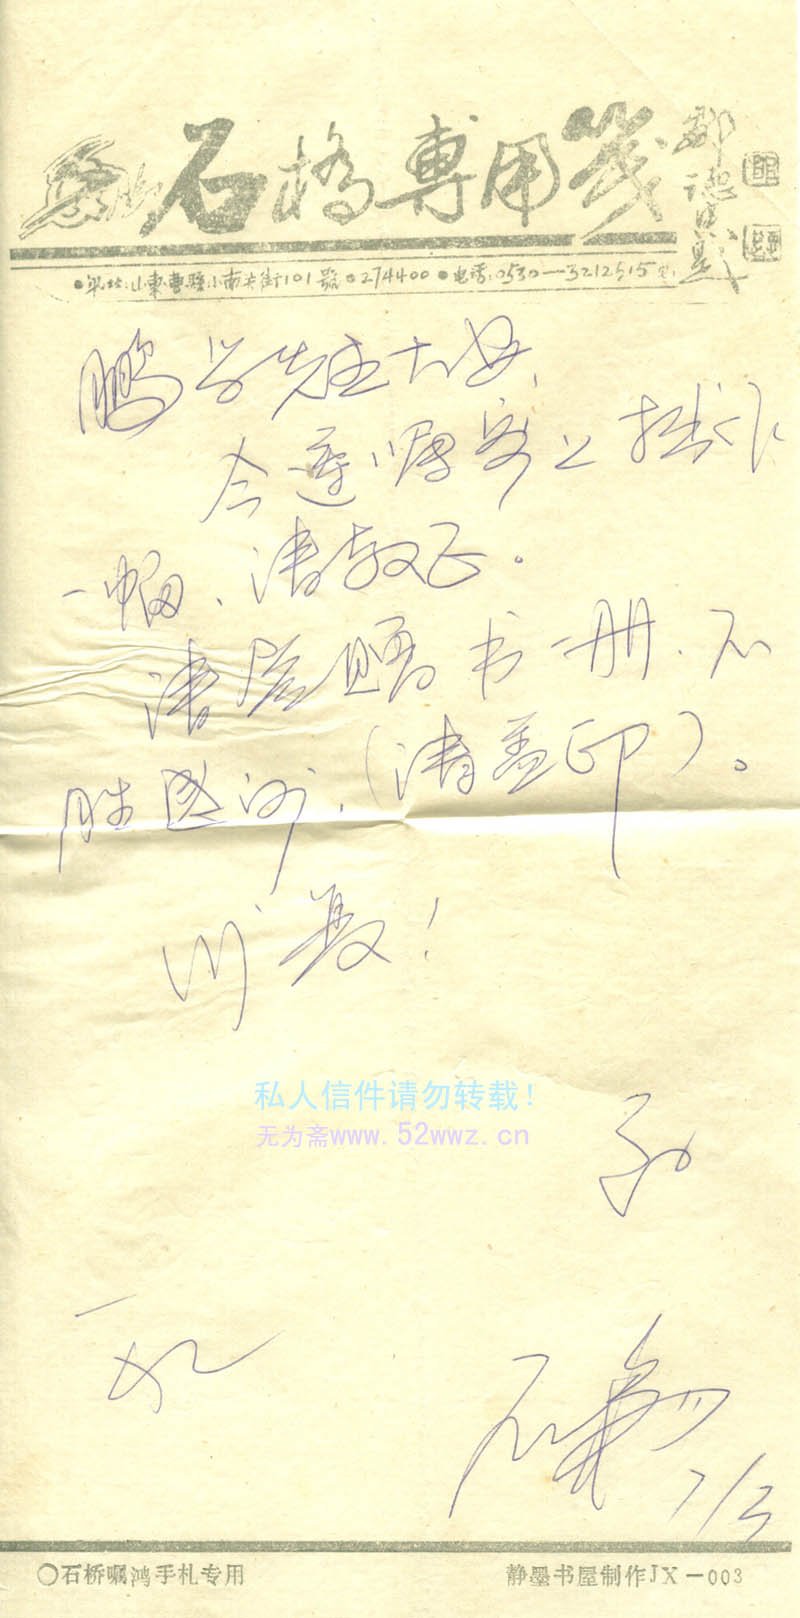 石橋專用箋
山東曹縣小南关街101號●274400●电话:0530—3212515
鹏学先生大安
今遵嘱寄上拙作
一幅、请教正。
请您赐书一册、不
胜感谢、(请盖印)。
顺
私人信件请勿转载!
无为斋www.52wwz.cn
石
7/3
〇石桥嘱鸿手札专用
静墨书屋制作JX-003